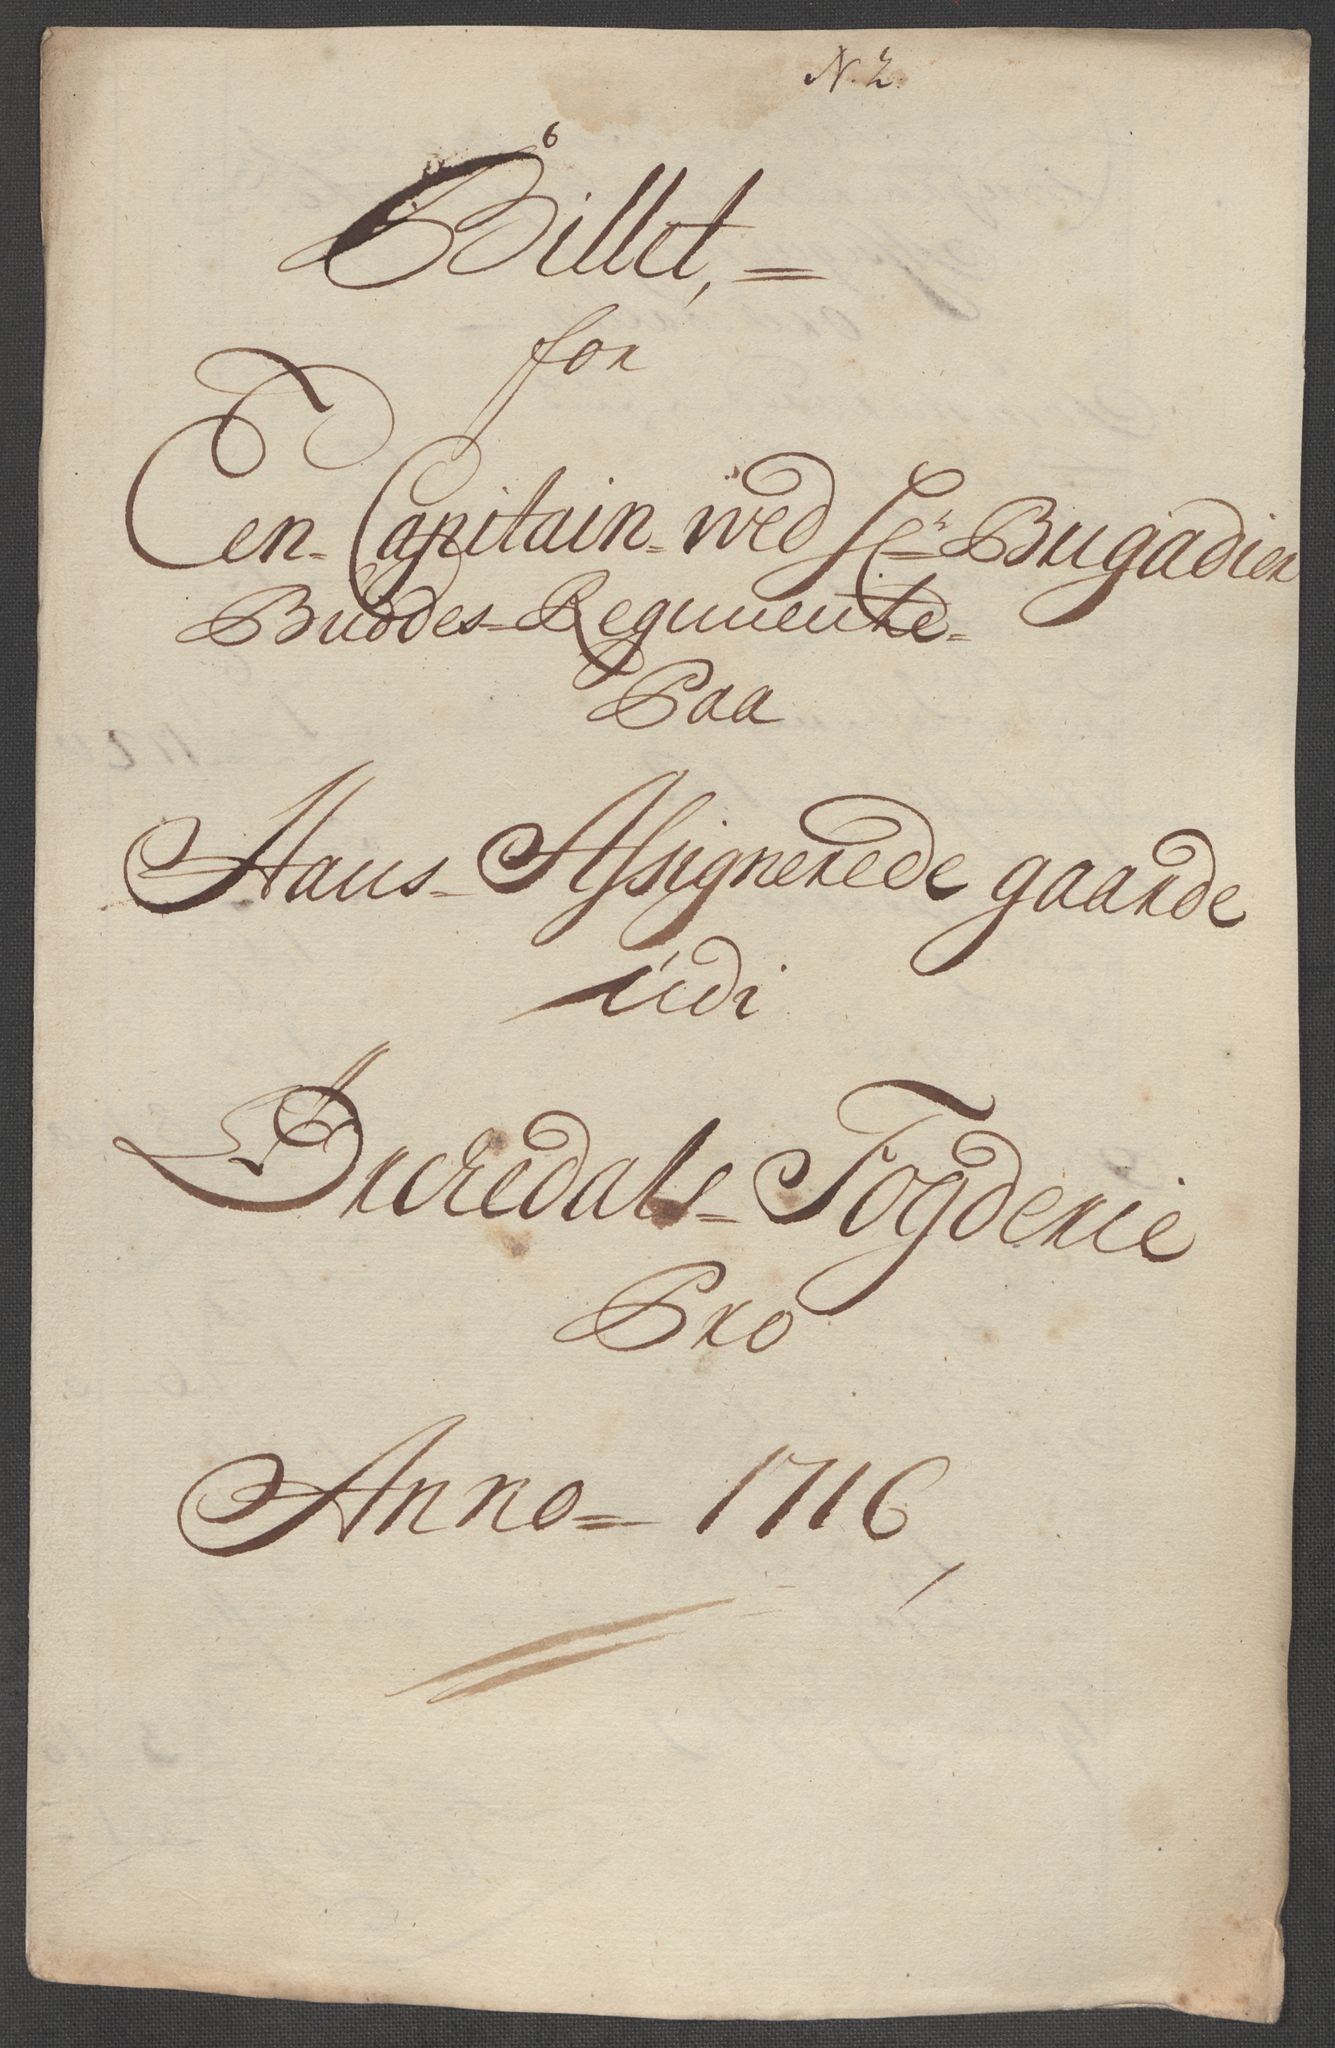 N. 2.
6
Billet,=
for
En Capitain ved Hr Brigadier
Buddes Regimente
Paa
Hans Assignerede gaarde
udi
Orchedals Fogderie
Pro
Anno= 1716,